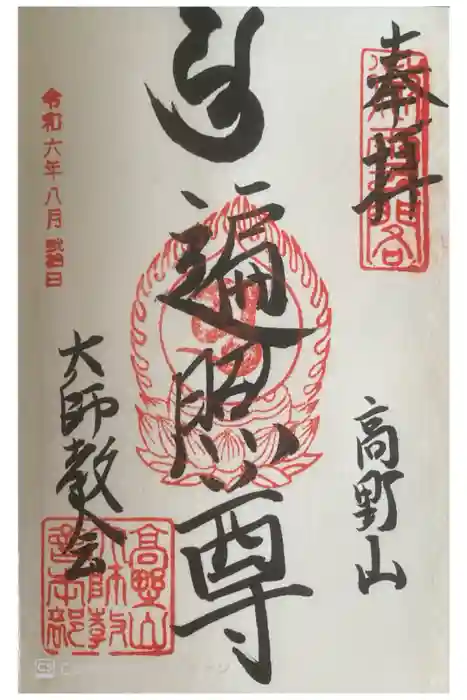 奉拝
高野山
遍照尊
令和六年八月弐拾日
大師教会
高野山
大師教
会本部